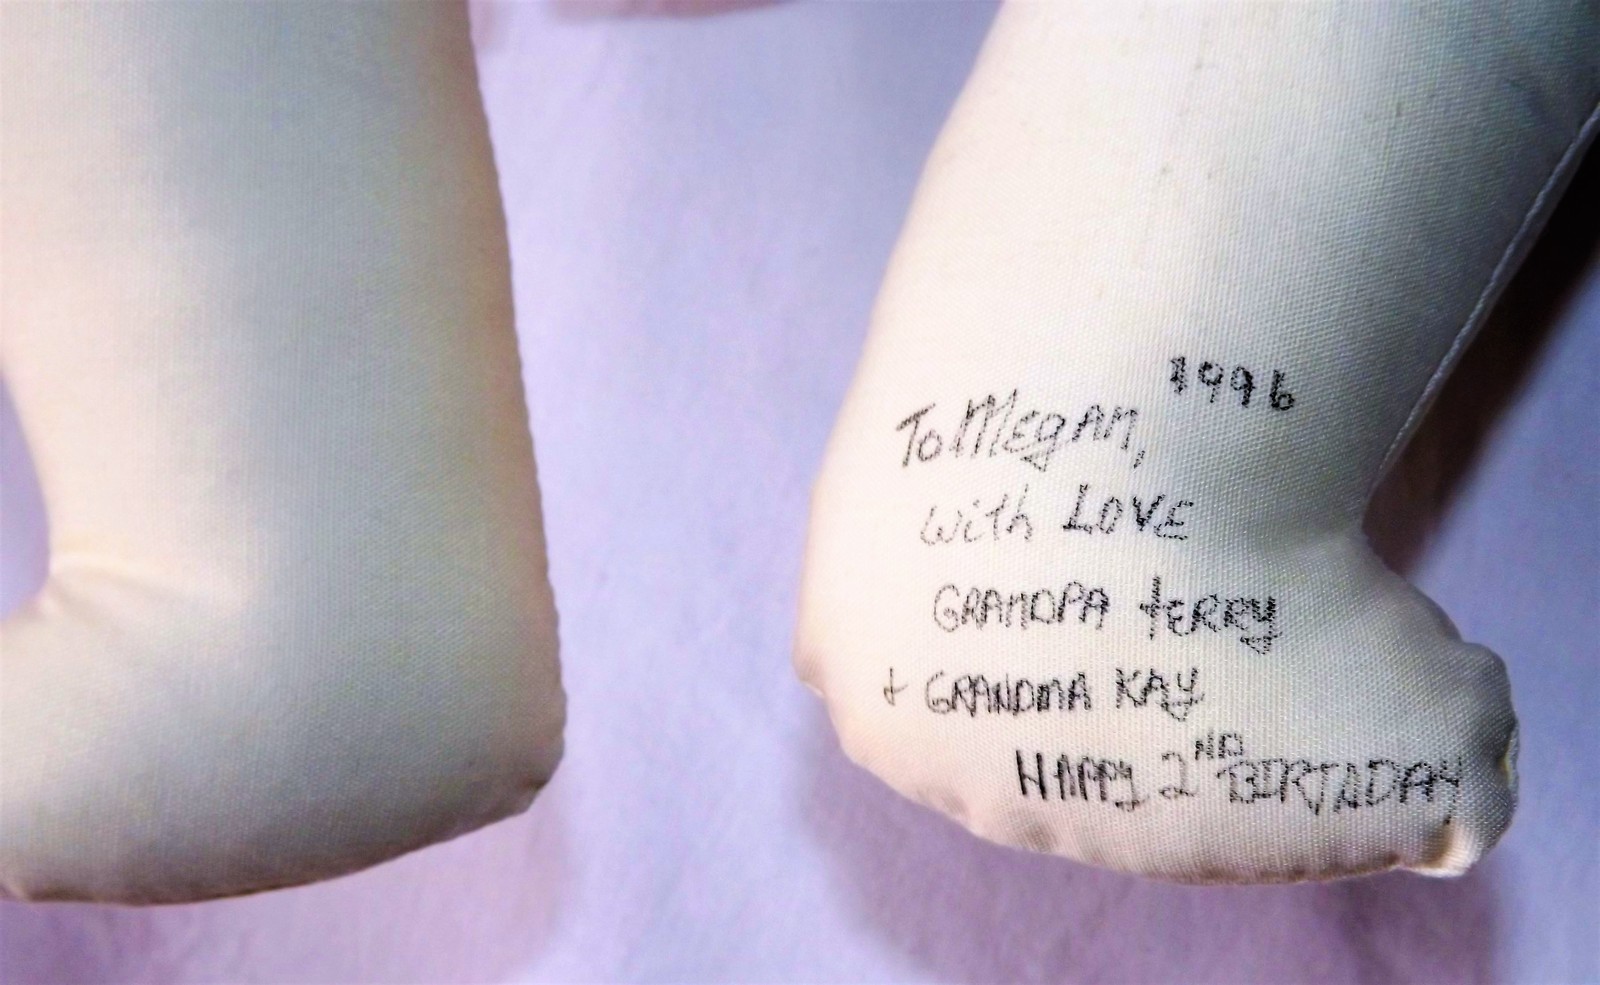 1996
To Megan,
with LOVE
GRANDPA tERRY
+ GRANDMA KAY
HAPPY 2ND BIRTHDAY